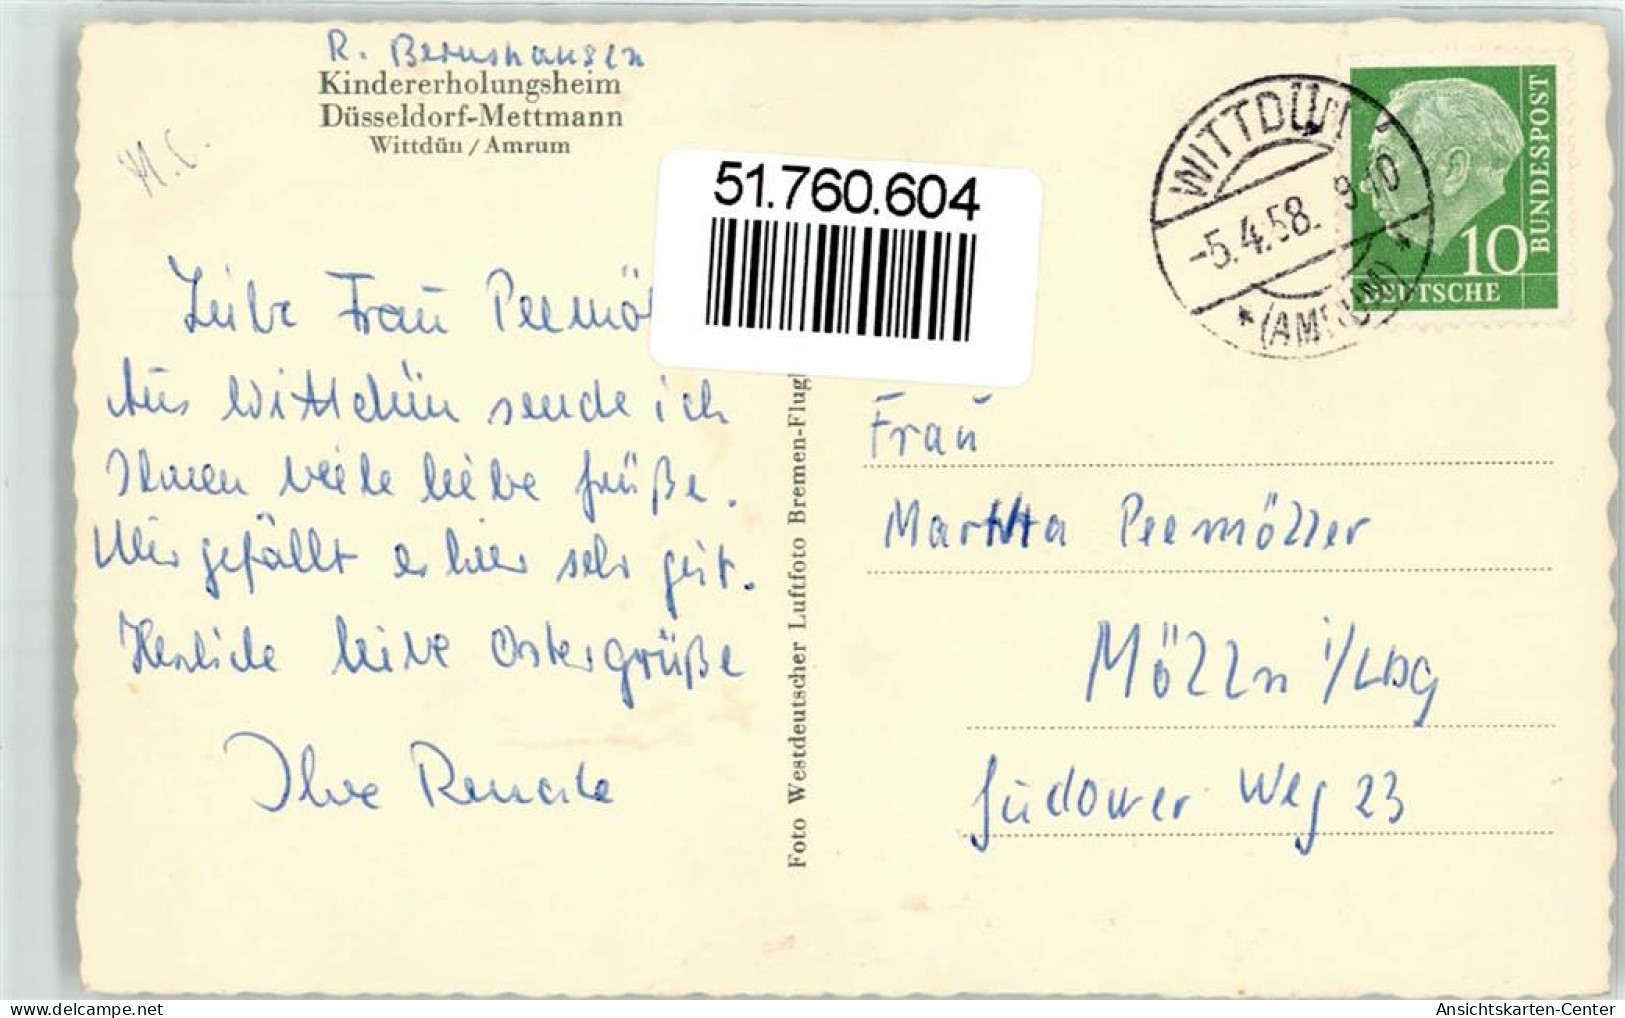 R. Bernshausen
Kindererholungsheim
Düsseldorf-Mettmann
Wittdün / Amrum
M.C.
51.760.604
WITTDÜN
-5.4.58. 9-10
(AMRUM)
10
DEUTSCHE
BUNDESPOST
Liebe Frau Peemöl
Aus Wittdün sende ich
Ihnen viele liebe Grüße.
Mir gefällt es hier sehr gut.
Herzliche liebe Ostergrüße
Ihre Renate
Foto Westdeutscher Luftfoto Bremen-Flugh
Frau
Martha Peemöller
Mölln i/Lbg
Gudower Weg 23
delcampe.net
Ansichtskarten-Center